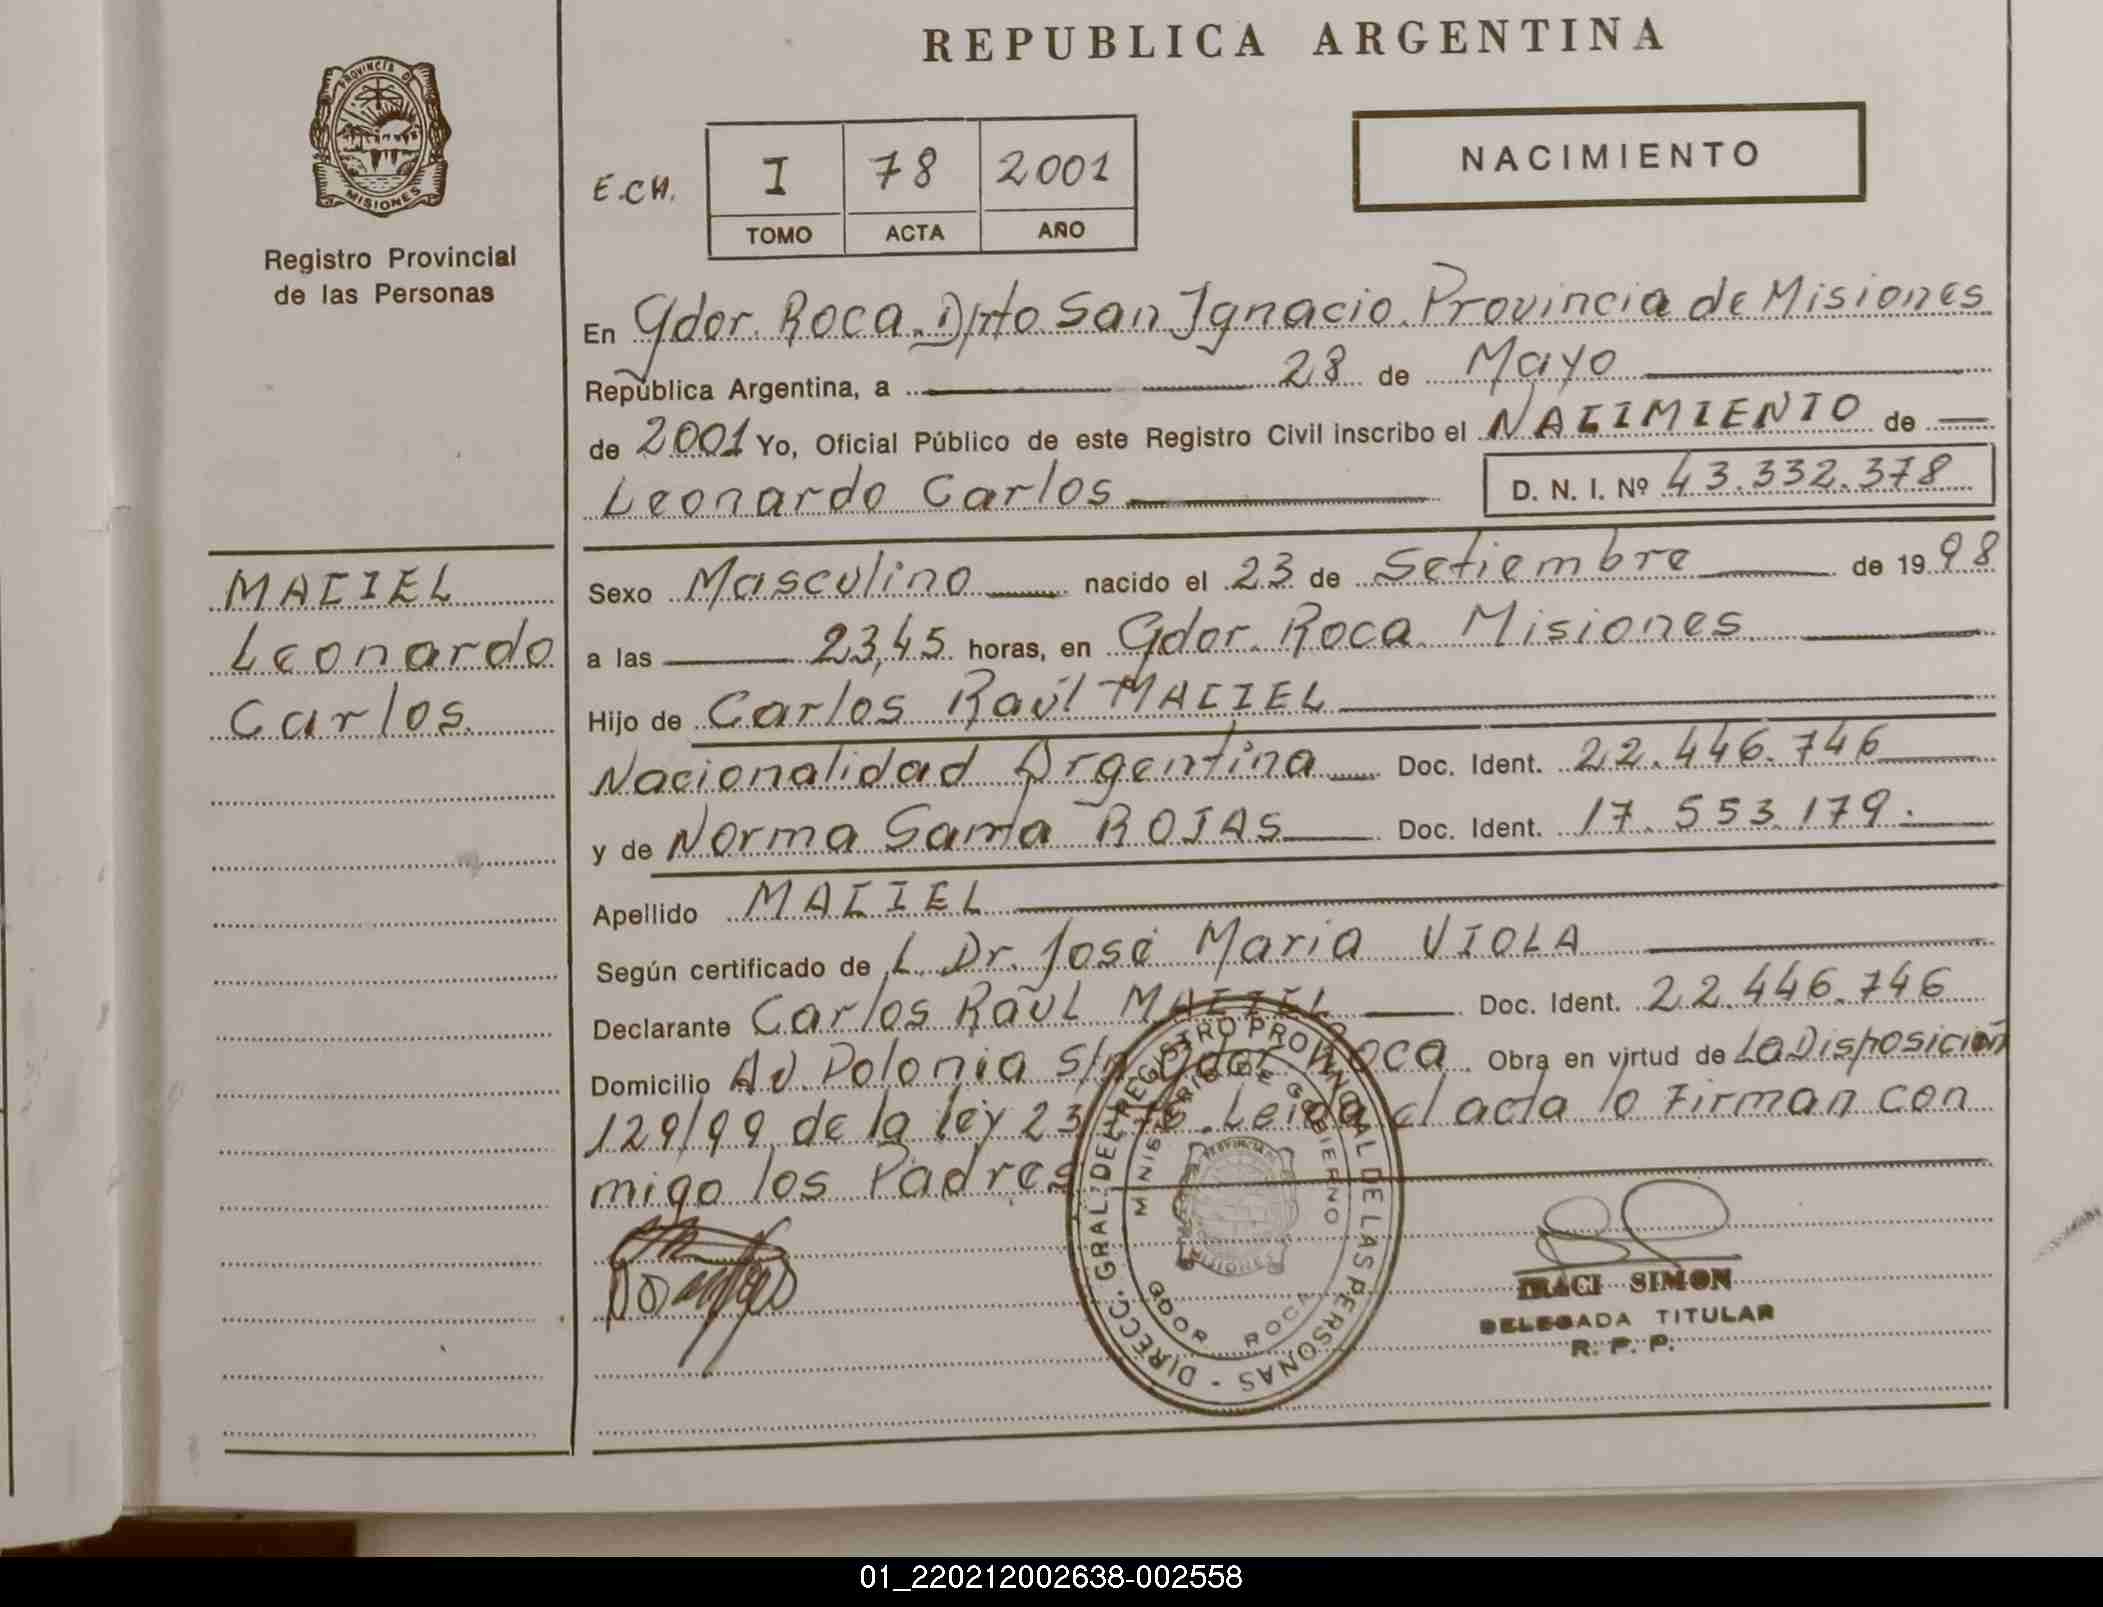 REPUBLICA ARGENTINA
PROVINCIA DE
MISIONES
Registro Provincial
de las Personas
E.CH.
I 78 2001
TOMO ACTA AÑO
NACIMIENTO
En Gdor. Roca. Dpto San Ignacio. Provincia de Misiones
República Argentina, a 28 de Mayo
de 2001 Yo, Oficial Público de este Registro Civil inscribo el NACIMIENTO de
Leonardo Carlos
D. N. I. Nº 43.332.378
MACIEL
Leonardo
Carlos
Sexo Masculino nacido el 23 de Setiembre de 1998
a las 23,45 horas, en Gdor. Roca. Misiones
Hijo de Carlos Raúl MACIEL
Nacionalidad Argentina Doc. Ident. 22.446.746
y de Norma ROJAS Doc. Ident. 17.553.179.
Apellido MACIEL
Según certificado de L. Dr. José Maria VIOLA
Declarante Carlos Raúl MACIEL Doc. Ident. 22.446.746
Domicilio Av. Polonia s/n Gdor Roca. Obra en virtud de La Disposición
129/99 de la ley Leida el acta lo Firman con
migo los Padres
DIRECC. GRAL. DEL REGISTRO PROVINCIAL DE LAS PERSONAS -
MINISTERIO DE GOBIERNO
PROVINCIA DE
MISIONES
GDOR ROCA
IRACI SIMON
DELEGADA TITULAR
R. P. P.
01_220212002638-002558